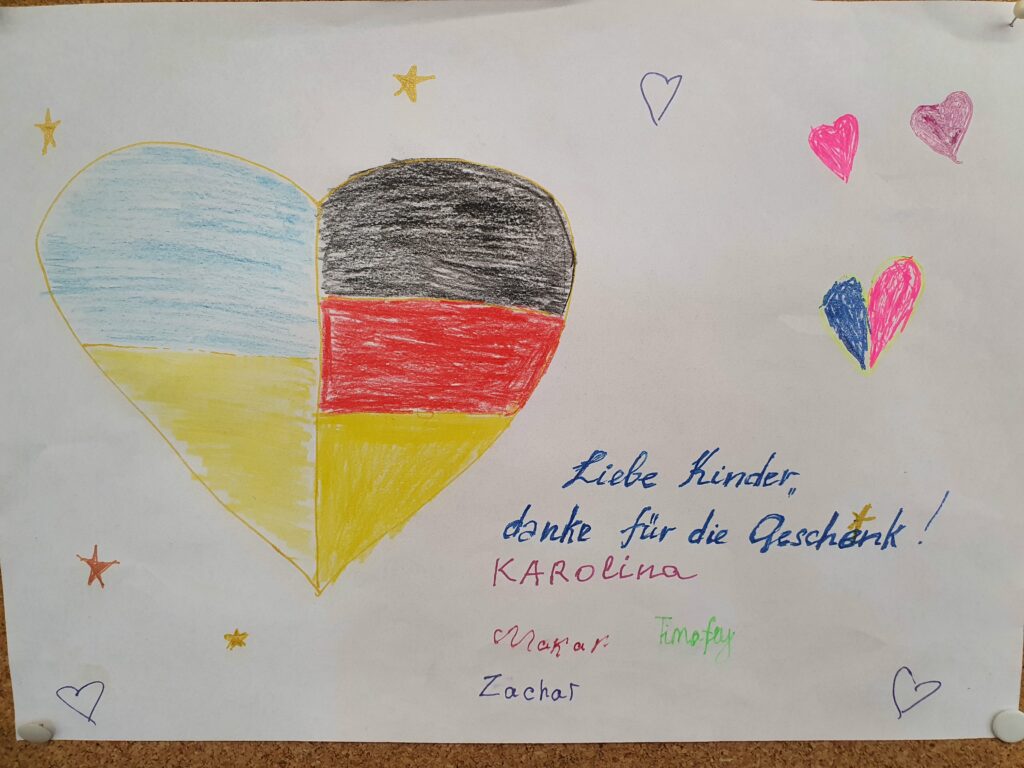 Liebe Kinder,,
danke für die Geschenk!
KARolina
Makar Timofey
Zachar